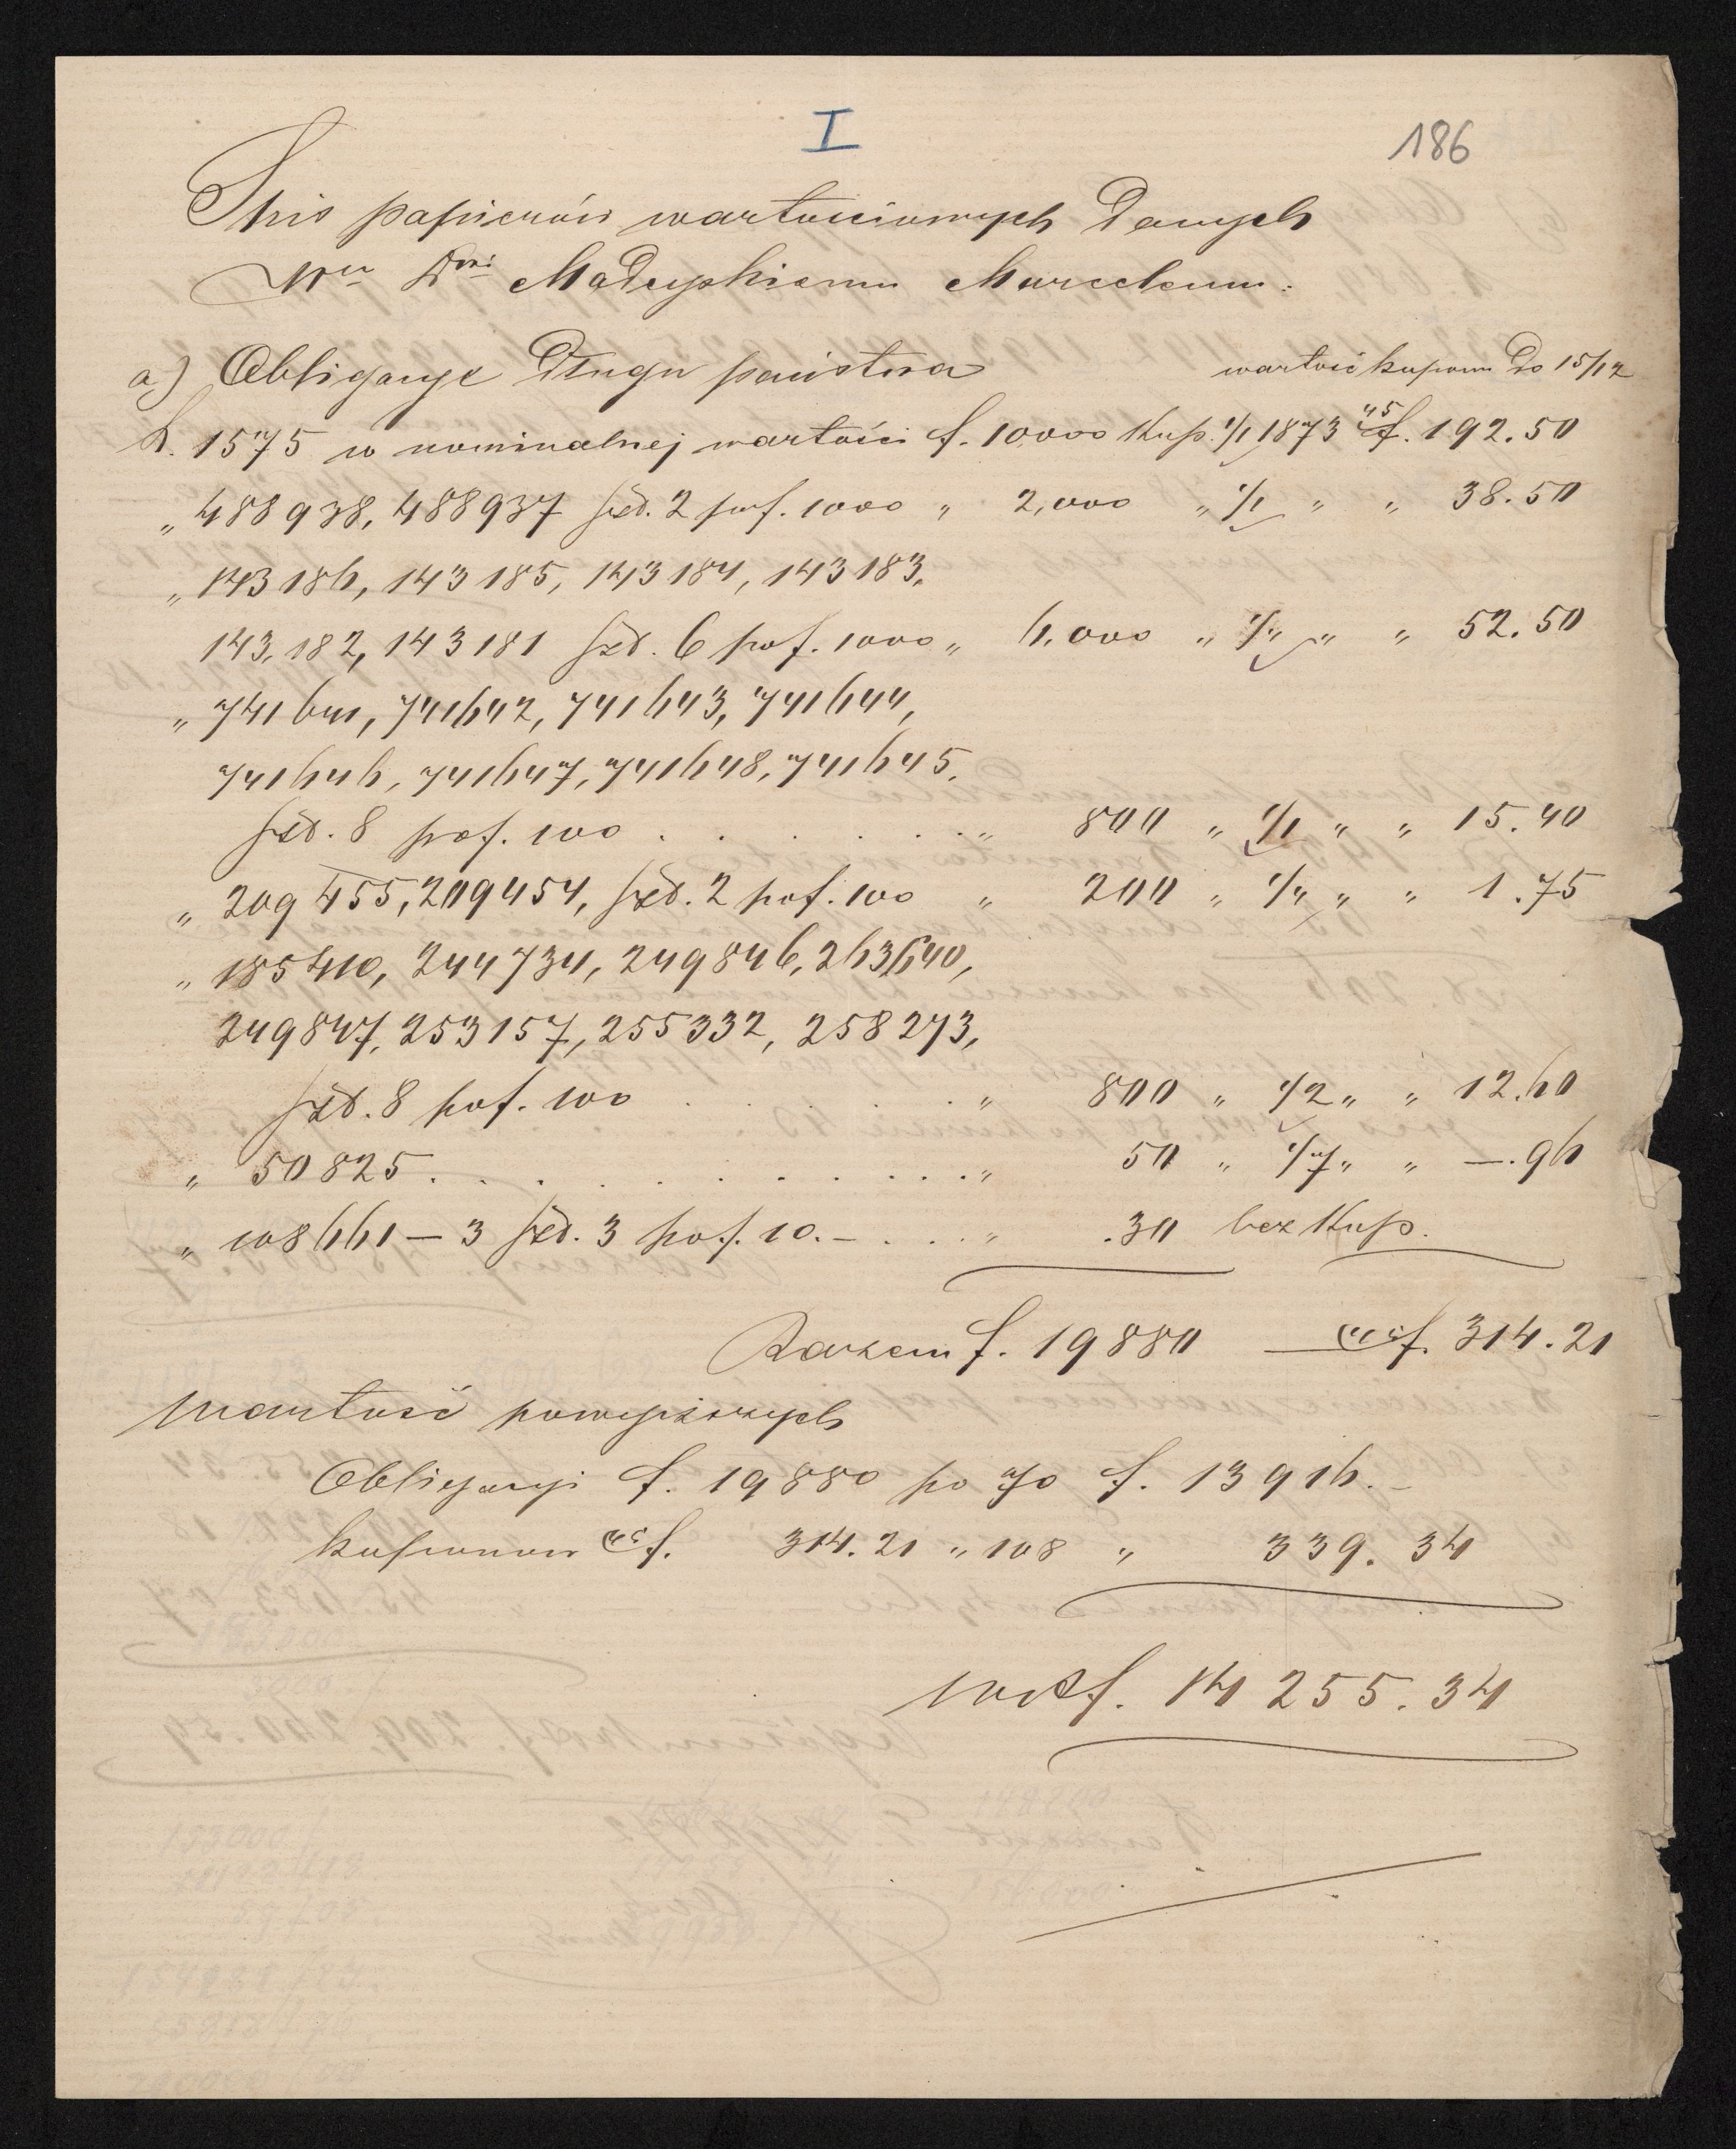 I
186
Spis papierów wartościowych danych
Wmu Dowi Madeyskiemu Marcelemu.
a) Obligacye długu państwa wartość kuponu do 15/12
L. 1575 w nominalnej wartości f. 10,000 Kup. 1/1 1873 f. 192.50
„ 488938, 488937 szt. 2 po f. 1000 „ 2,000 „ 1/1 „ „ 38.50
„ 143186, 143185, 143184, 143183,
143,182, 143181 szt. 6 po f. 1000 „ 6.000 „ 1/4 „ „ 52.50
„ 741641, 741642, 741643, 741644,
741646, 741647, 741648, 741645.
szt. 8 po f. 100 . . . . . . . „ 800 „ 1/1 „ „ 15.40
„ 209455, 209454, szt. 2 po f. 100 „ 200 „ 1/4 „ „ 1.75
„ 185410, 244734, 249846, 263640,
249847, 253157, 255332, 258273,
szt. 8 po f. 100 . . . . . . „ 800 „ 1/2 „ „ 12.60
„ 50825 . . . . . . . . . . . „ 50 „ 1/7 „ „ —.96
„ 108661 — 3 szt. 3 po f. 10. — . . . „ .30 bez Kup.
Razem f. 19880 — f. 314.21
Wartość powyższych
Obligacyi f. 19880 po 70 f. 13916. —
kuponów f. 314.21 „ 108 „ 339.34
waf. 14255.34